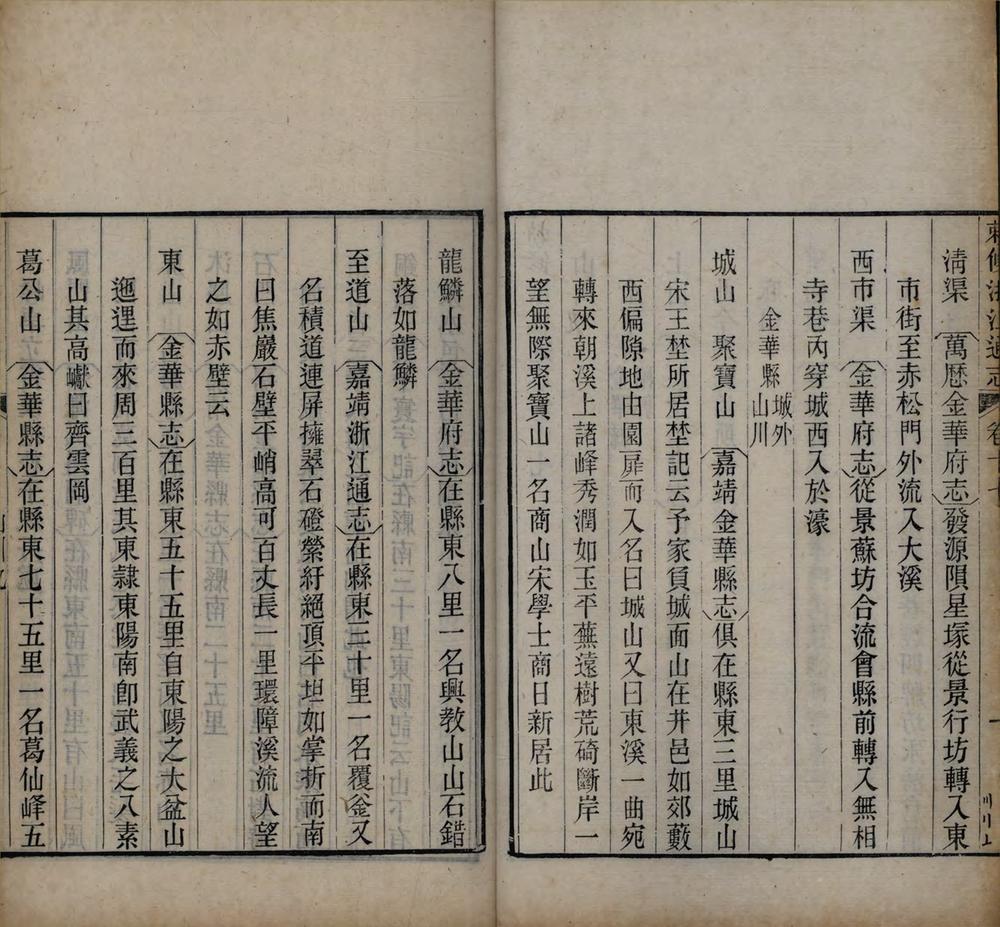 敕修浙江通志 卷十七
清渠 萬厯金華府志發源隕星塚從景行坊轉入東
市街至赤松門外流入大溪
西市渠 金華府志從景蘇坊合流會縣前轉入無相
寺巷內穿城西入於濠
金華縣 城外山川
城山 聚寶山 嘉靖金華縣志俱在縣東三里城山
宋王埜所居埜記云予家負城面山在井邑如郊藪
西偏隙地由園扉而入名曰城山又曰東溪一曲宛
轉來朝溪上諸峰秀潤如玉平蕪遠樹荒碕斷岸一
望無際聚寶山一名商山宋學士商日新居此
龍鱗山 金華府志在縣東八里一名興教山山石錯
落如龍鱗
至道山 嘉靖浙江通志在縣東三十里一名覆釜又
名積道連屏擁翠石磴縈紆絕頂平坦如掌折而南
曰焦巖石壁平峭高可百丈長一里環障溪流人望
之如赤壁云
東山 金華縣志在縣東五十五里自東陽之大盆山
迤邐而來周三百里其東隸東陽南卽武義之八素
山其高巘曰齊雲岡
葛公山 金華縣志在縣東七十五里一名葛仙峰五